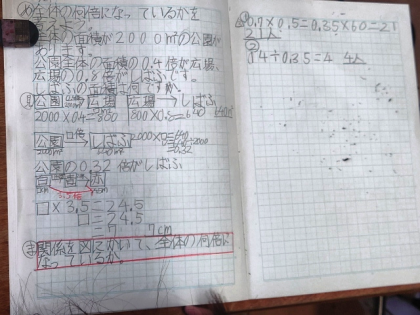 め全体の何倍になっているかを
全体の面積が2000㎡の公園が
あります。
公園全体の面積の0.4倍が広場、
広場の0.8倍がしばふです。
しばふの面積は何㎡ですか。
公園→広場 広場→しばふ
2000×0.4=800 800×0.8=640
公園→しばふ
公園の0.32倍がしばふ
□×3.5=24.5
□=24.5
=7 7cm
ま関係を図にかいて、全体の何倍に
なっているか。
0.7×0.5=0.35×60=21
21人
②
14÷0.35=4 4人